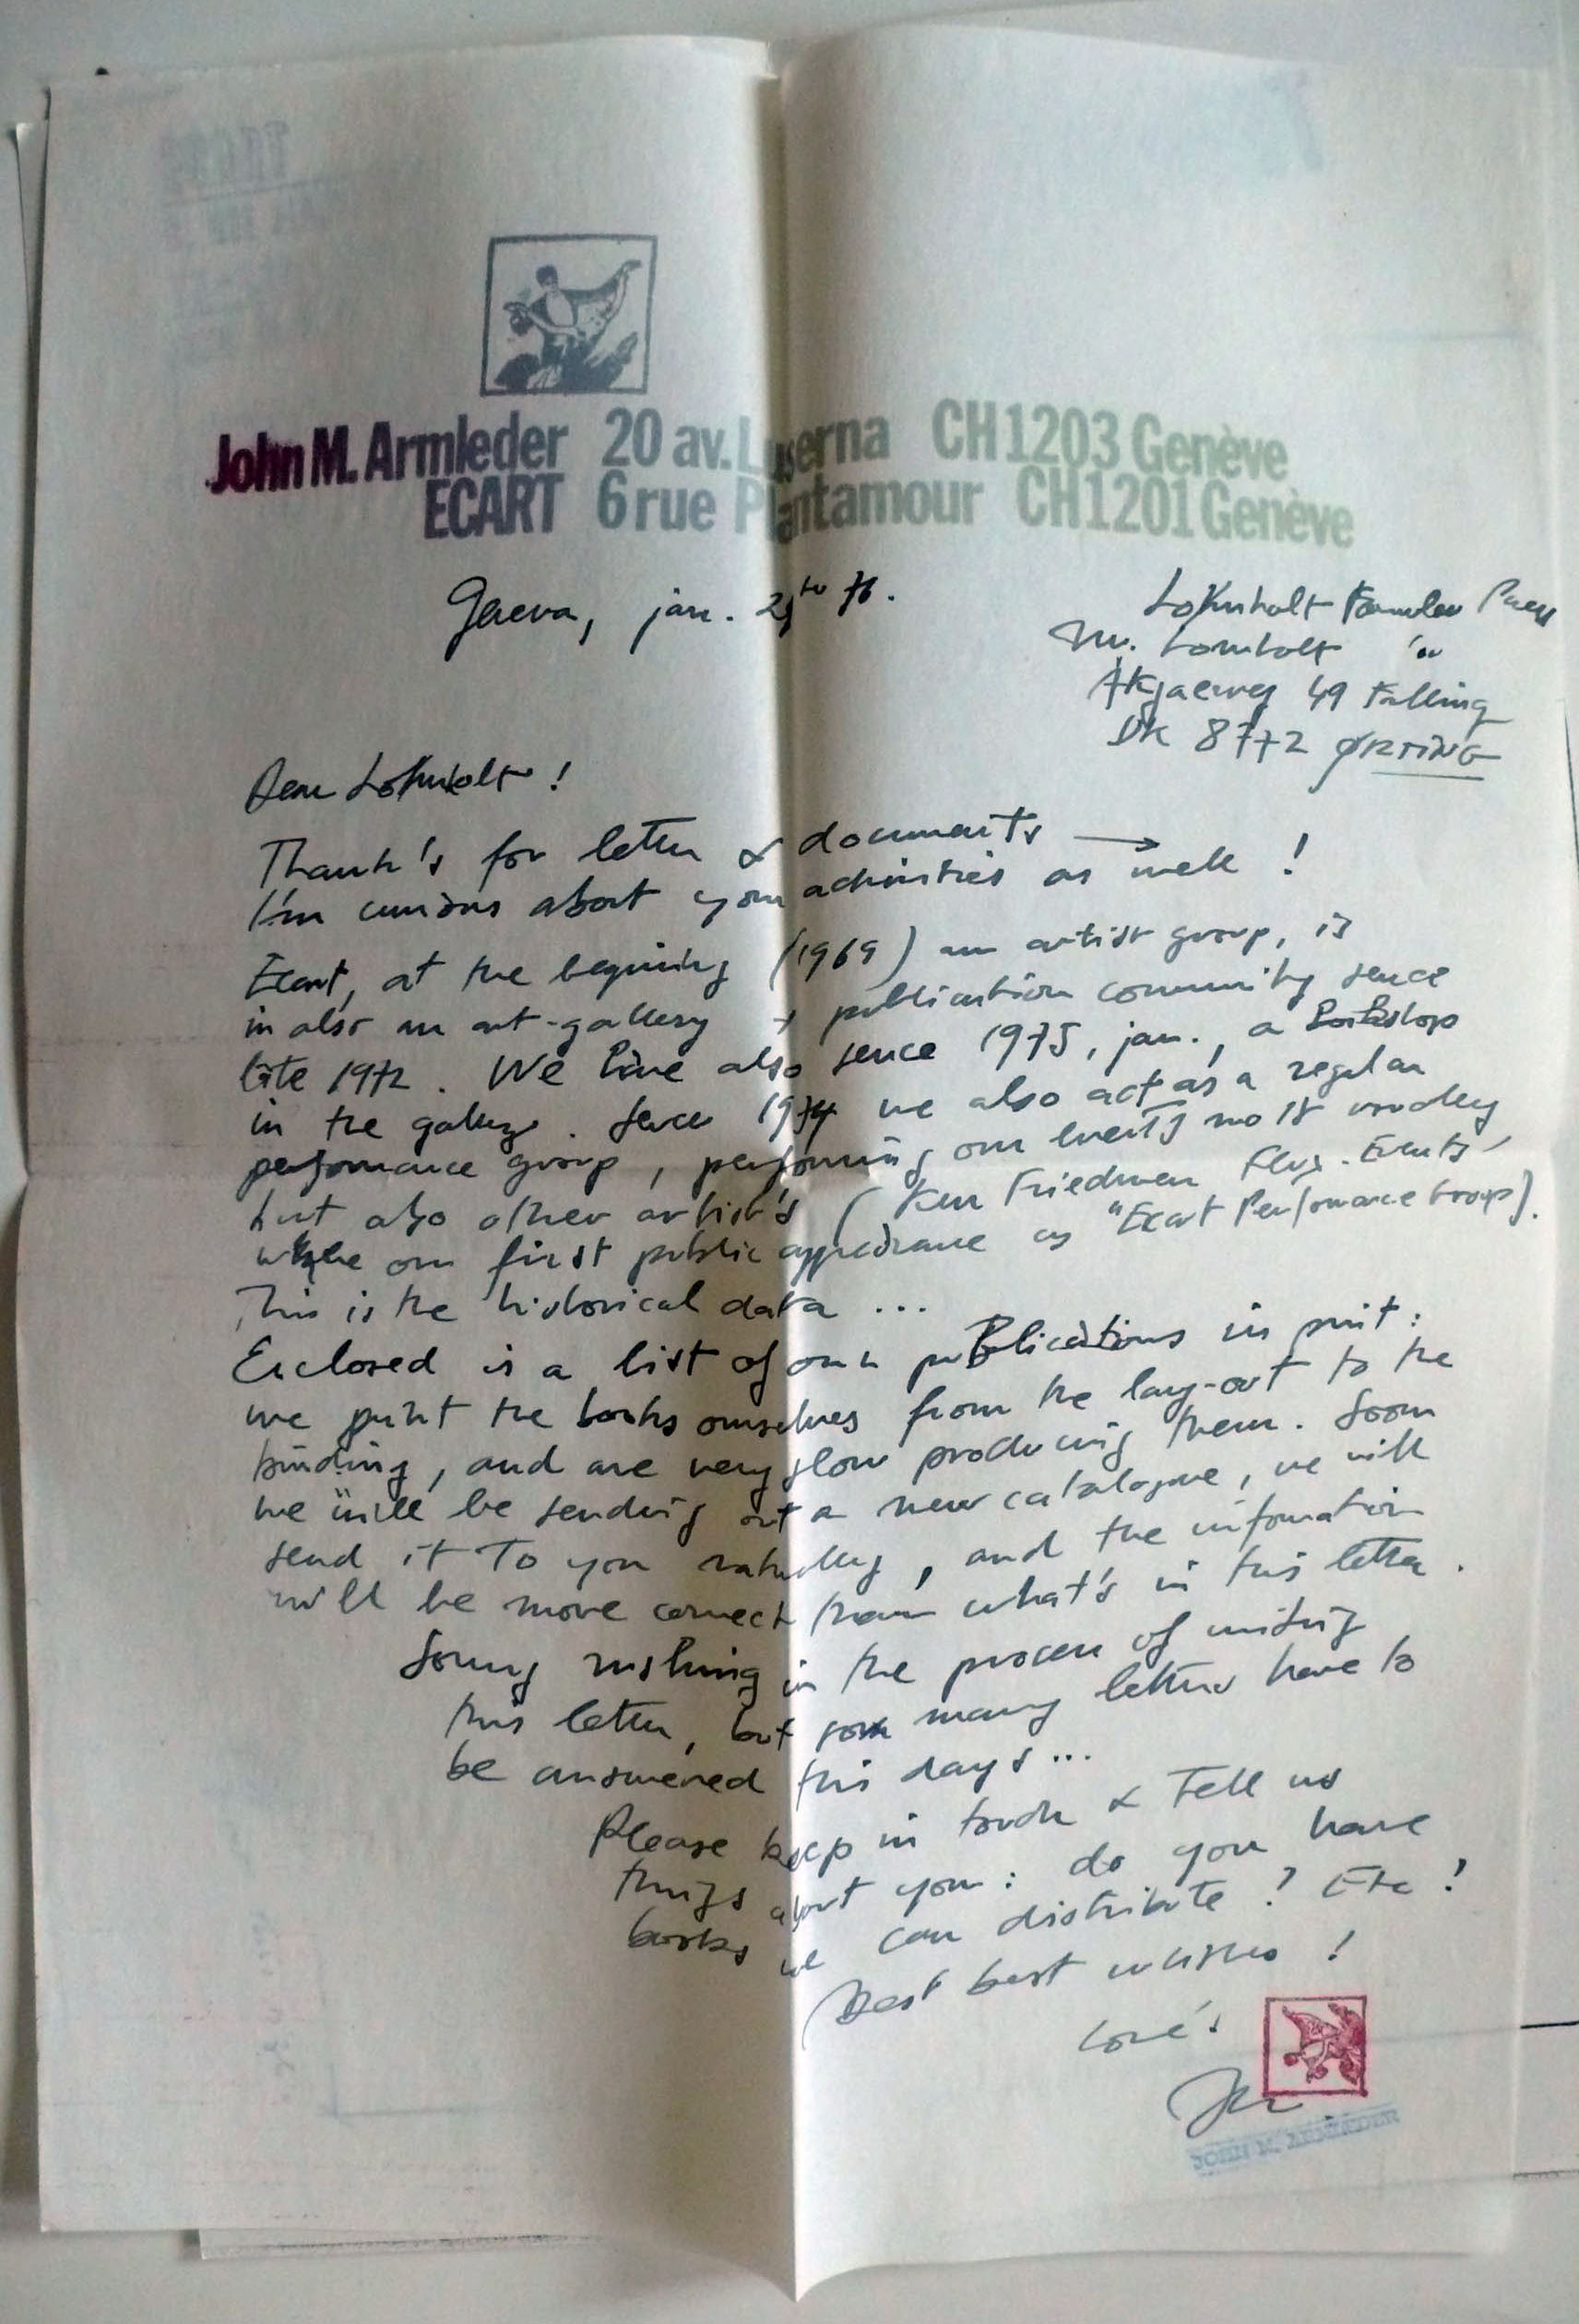 John M. Armleder 20 av. Luserna CH 1203 Genève
ECART 6 rue Plantamour CH 1201 Genève
Geneva, jan. 76.
Lomholt Formular Press
Mr. Lomholt "
Åkjaervej 49 Falling
DK 8772 ØRTING
Dear Lomholt !
Thank's for letter & documents →
I'm curious about your activities as well !
Ecart, at the begining (1969) an artist group, is
in also an art-gallery + publication community sence
late 1972. We have also sence 1975, jan., a Bookshop
in the gallery. Sence 1974 we also act as a regular
performance group, performing our events mostly
but also other artist's (Ken Friedman Flux-Events
where our first public appearance as "Ecart Performance Group).
This is the historical data ...
Enclosed is a list of our publications in print :
we print the books ourselves from the lay-out to the
binding, and are very slow producing them. Soon
we will be sending out a new catalogue, we will
send it to you naturally, and the information
will be more correct than what's in this letter.
Sorry rushing in the process of writing
this letter, but so many letters have to
be answered this days ...
Please keep in touch & tell us
things about you : do you have
books we can distribute ? Etc !
Best best wishes !
Love !
John
JOHN M. ARMLEDER